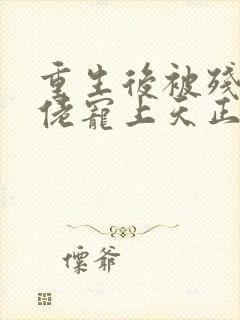 重生後被殘
佬寵上天正
慄爺